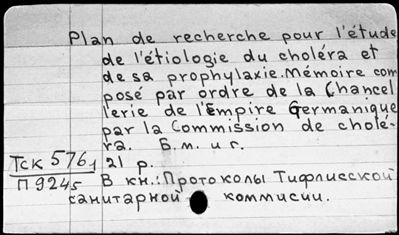 Plan de recherche pour l'étude
de l'étiologie du choléra et
de sa prophylaxie. Mémoire com
posé par ordre de la Chancel
lerie de l'Empire Germanique
par la Commission de cholé-
ra. Б.м. и г.
Тск 576₁ 21 р.
П 9245 В кн.: Протоколы Тифлисской
санитарной коммисии.